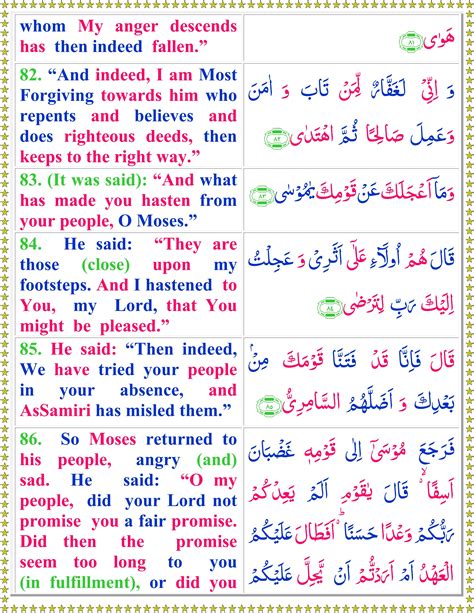 whom My anger descends
has then indeed fallen.”
هَوٰى ﴿٨١﴾
82. “And indeed, I am Most
Forgiving towards him who
repents and believes and
does righteous deeds, then
keeps to the right way.”
وَ اِنِّیْ لَغَفَّارٌ لِّمَنْ تَابَ وَ اٰمَنَ
وَعَمِلَ صَالِحًا ثُمَّ اهْتَدٰى ﴿٨٢﴾
83. (It was said): “And what
has made you hasten from
your people, O Moses.”
وَمَاۤ اَعْجَلَكَ عَنْ قَوْمِكَ يٰمُوْسٰى ﴿٨٣﴾
84. He said: “They are
those (close) upon my
footsteps. And I hastened to
You, my Lord, that You
might be pleased.”
قَالَ هُمْ اُولَآءِ عَلٰۤى اَثَرِیْ وَ عَجِلْتُ
اِلَيْكَ رَبِّ لِتَرْضٰى ﴿٨٤﴾
85. He said: “Then indeed,
We have tried your people
in your absence, and
AsSamiri has misled them.”
قَالَ فَاِنَّا قَدْ فَتَنَّا قَوْمَكَ مِنْۢ
بَعْدِكَ وَ اَضَلَّهُمُ السَّامِرِیُّ ﴿٨٥﴾
86. So Moses returned to
his people, angry (and)
sad. He said: “O my
people, did your Lord not
promise you a fair promise.
Did then the promise
seem too long to you
(in fulfillment), or did you
فَرَجَعَ مُوْسٰۤى اِلٰى قَوْمِهٖ غَضْبَانَ
اَسِفًا ۚ قَالَ يٰقَوْمِ اَلَمْ يَعِدْكُمْ
رَبُّكُمْ وَعْدًا حَسَنًا ۬ؕ اَفَطَالَ عَلَيْكُمُ
الْعَهْدُ اَمْ اَرَدْتُّمْ اَنْ يَّحِلَّ عَلَيْكُمْ